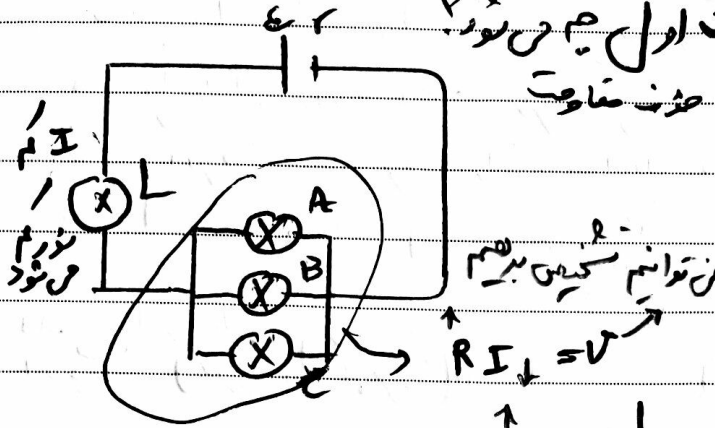 ε r
اول چه می شود؟
حذف مقاومت
I کم
L
نور کم
می شود
A
B
C
نمی توانیم تشخیص بدهیم
↑ R I ↓ = V ↗
↑